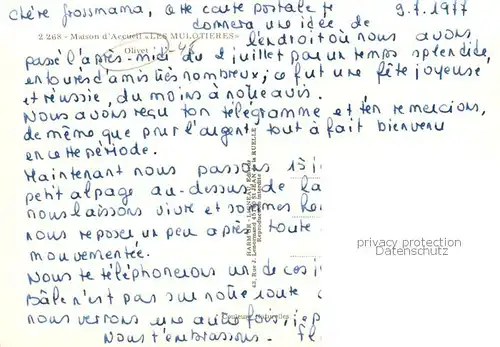 chère Grossmama, cette carte postale te 9.7.1977
donnera une idée de
2 268 - Maison d'Accueil «LES MULOTIERES»
l'endroit où nous avons
Olivet - 45
passé l'après-midi du 2 juillet par un temps splendide,
entourés d'amis très nombreux, ce fut une fête joyeuse
et réussie, du moins à notre avis.
Nous avons reçu ton télégramme et t'en remercions,
de même que pour l'argent, tout à fait bienvenu
en cette période.
Maintenant nous passons 15 j
petit alpage au-dessus de la
nous laissons vivre et sommes
nous reposer un peu après toute
mouvementée.
Nous te téléphonerons un de ces j
Bâle n'est pas sur notre route
nous verrons une autre fois, j'esp
Nous t'embrassons.
HARMIGNIES Editeur
42, Rue J. Lenormand 45 ST JEAN de la RUELLE
Reproduction Interdite
Couleurs Naturelles
privacy protection
Datenschutz